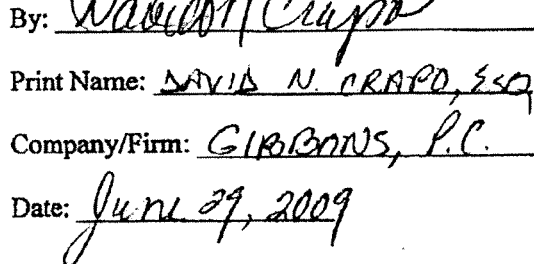 By: David N Crapo
Print Name: DAVID N. CRAPO, ESQ
Company/Firm: GIBBONS, P.C.
Date: June 29, 2009